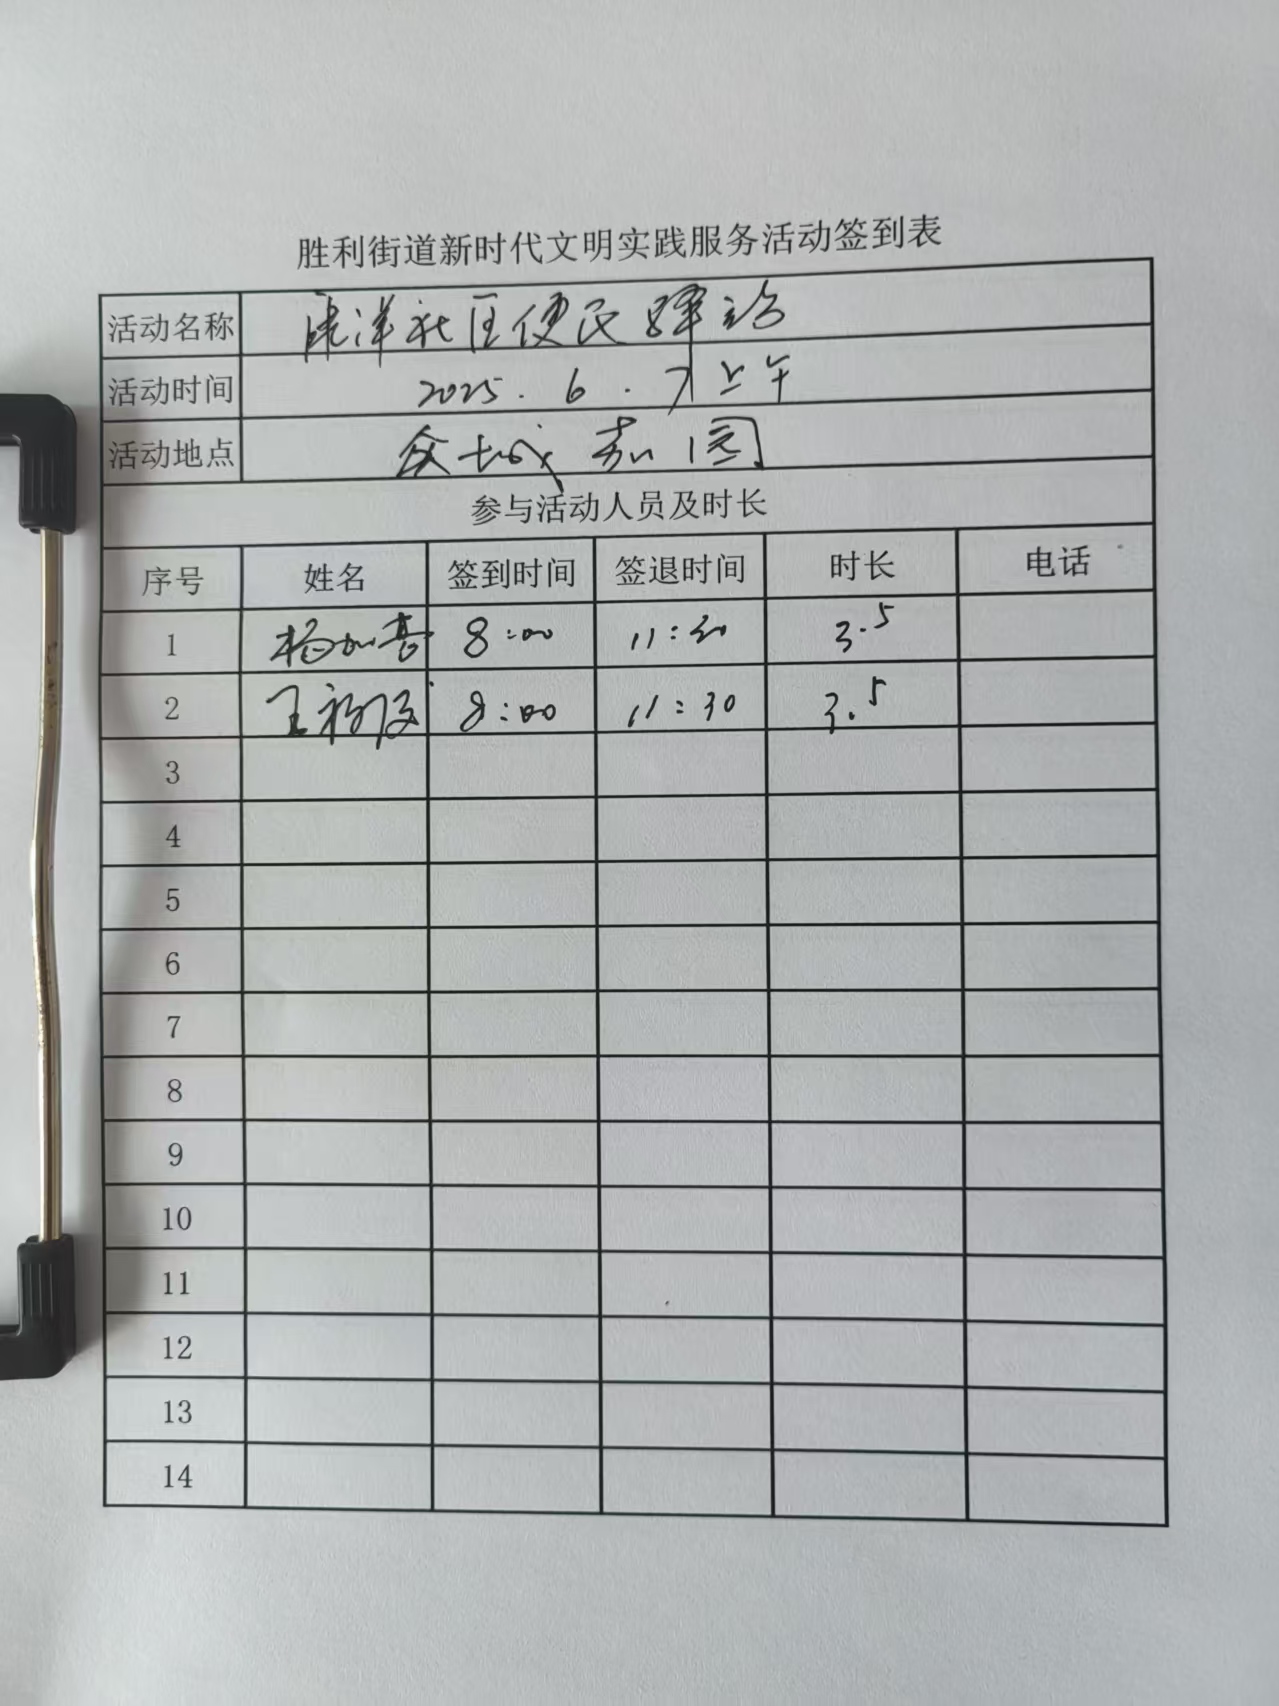 胜利街道新时代文明实践服务活动签到表
活动名称 洋社区便民驿站
活动时间 2025.6.7上午
活动地点 众城嘉园
参与活动人员及时长
序号 姓名 签到时间 签退时间 时长 电话
1 杨 8:00 11:30 3.5
2 王 8:00 11:30 3.5
3
4
5
6
7
8
9
10
11
12
13
14